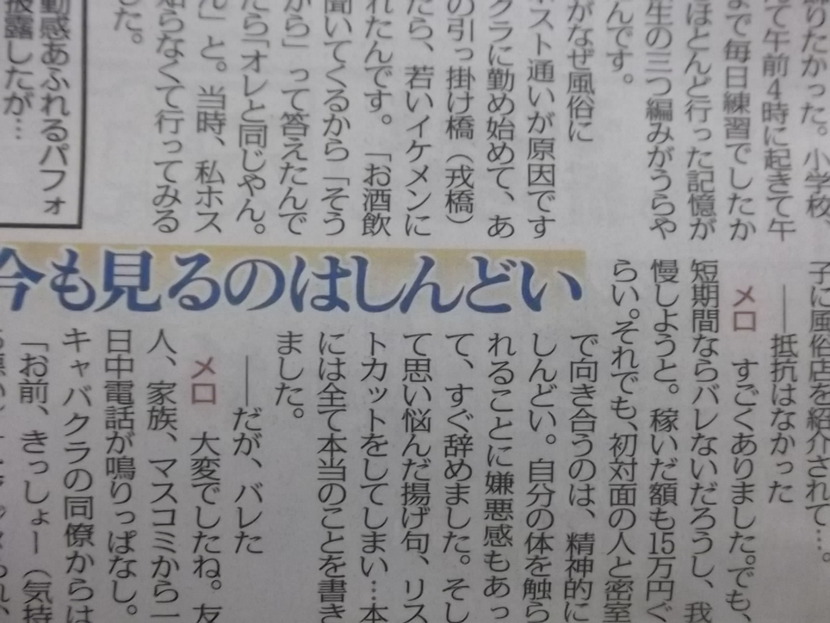 りたかった。小学校、
て午前4時に起きて午
まで毎日練習でしたか
ほとんど行った記憶が
生の三つ編みがうらや
んです。
がなぜ風俗に
スト通いが原因です
クラに勤め始めて、あ
の引っ掛け橋（戎橋）
たら、若いイケメンに
れたんです。「お酒飲
聞いてくるから「そう
から」って答えたんで
たら「オレと同じやん。
ん」と。当時、私ホス
知らなくて行ってみる
した。
動感あふれるパフォ
披露したが…
今も見るのはしんどい
子に風俗店を紹介されて…。
――抵抗はなかった
メロ　すごくありました。でも、
短期間ならバレないだろうし、我
慢しようと。稼いだ額も15万円ぐ
らい。それでも、初対面の人と密室
で向き合うのは、精神的に
しんどい。自分の体を触ら
れることに嫌悪感もあっ
て、すぐ辞めました。そし
て思い悩んだ揚げ句、リス
トカットをしてしまい…本
には全て本当のことを書き
ました。
――だが、バレた
メロ　大変でしたね。友
人、家族、マスコミから一
日中電話が鳴りっぱなし。
キャバクラの同僚からは
「お前、きっしょー（気持